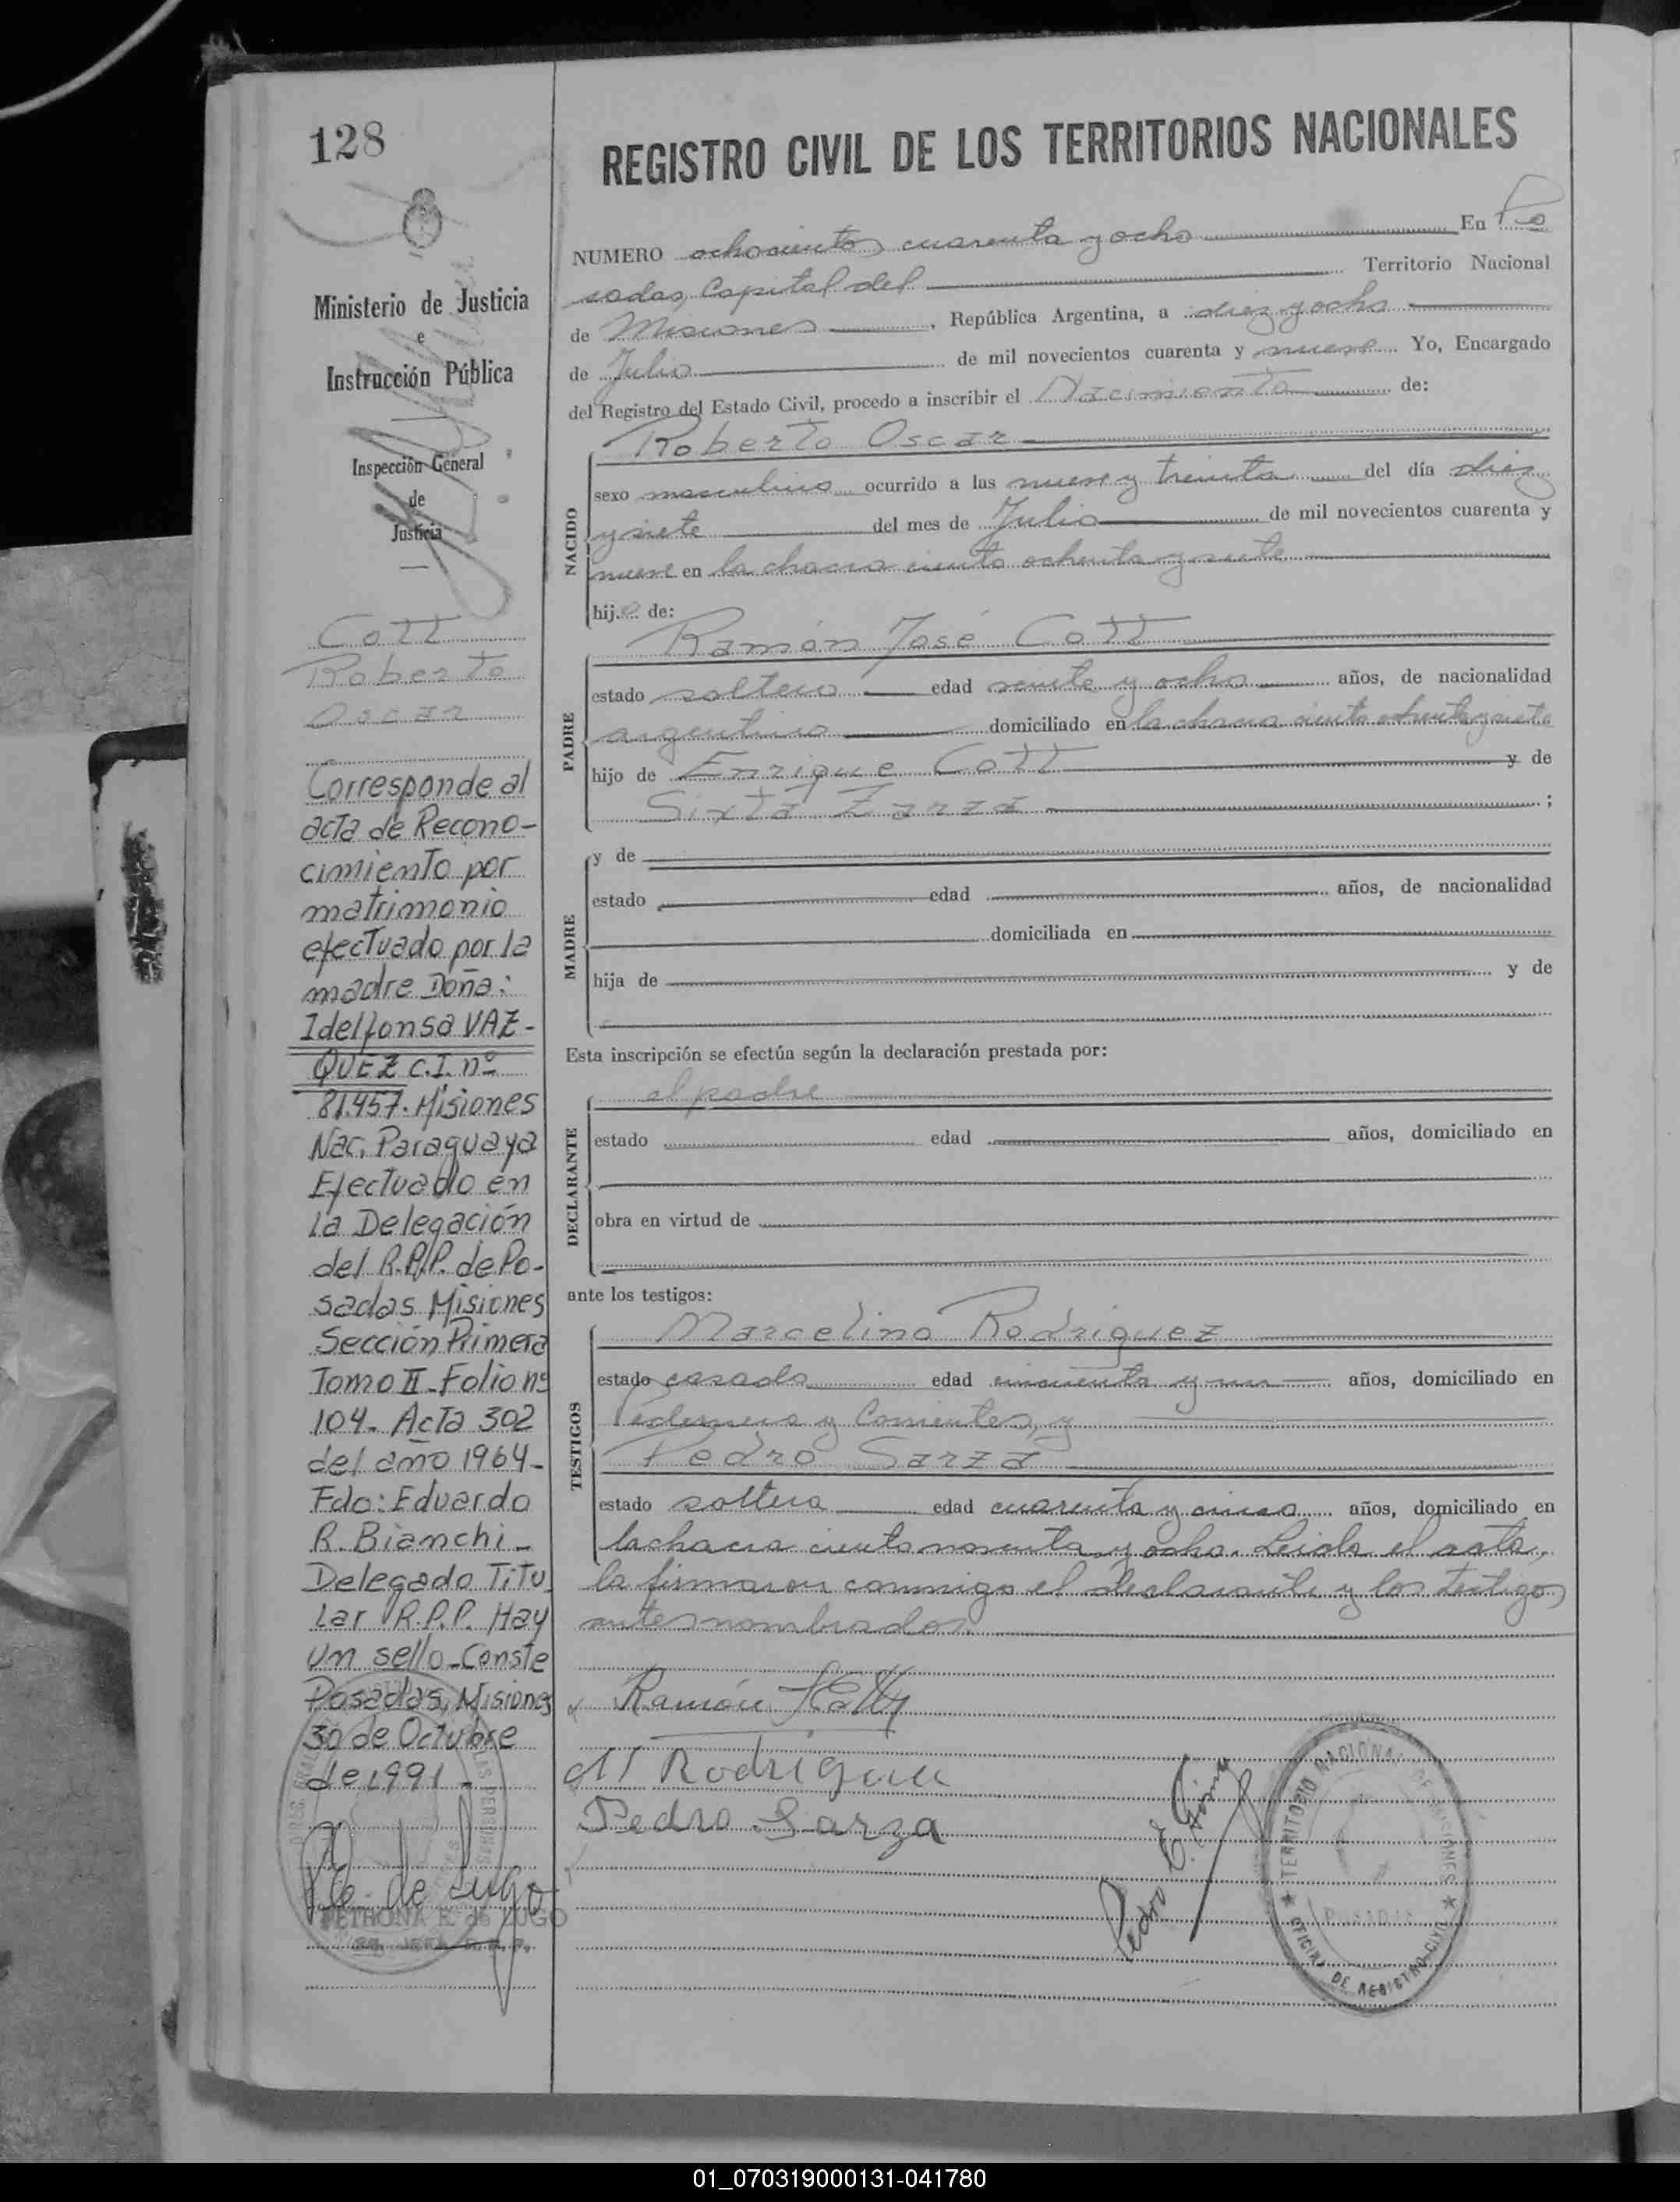 128
Ministerio de Justicia
e
Instrucción Pública
Inspección General
de
Justicia
Cott
Roberto
Oscar
Corresponde al
acta de Recono-
cimiento por
matrimonio
efectuado por la
madre Doña:
Idelfonsa VAZ-
QUEZ C.I. nº
81.457. Misiones
Nac. Paraguaya
Efectuado en
la Delegación
del R.P.P. de Po-
sadas Misiones
Sección Primera
Tomo II - Folio nº
104. Acta 302
del año 1964-
Fdo: Eduardo
R. Bianchi -
Delegado Titu
lar R.P.P. Hay
un sello - Conste
Posadas, Misiones
30 de Octubre
de 1991 -
PETRONA R. de LUGO
REGISTRO CIVIL DE LOS TERRITORIOS NACIONALES
NUMERO ochocientos cuarenta y ocho En Po
sadas, Capital del Territorio Nacional
de Misiones, República Argentina, a diez y ocho
de Julio de mil novecientos cuarenta y nueve Yo, Encargado
del Registro del Estado Civil, procedo a inscribir el Nacimiento de:
Roberto Oscar
NACIDO
sexo masculino ocurrido a las nueve y treinta del día diez
y siete del mes de Julio de mil novecientos cuarenta y
nueve en la chacra ciento ochenta y siete
hijo de:
Ramón José Cott
PADRE
estado soltero edad veinte y ocho años, de nacionalidad
argentino domiciliado en la chacra ciento ochenta y siete
hijo de Enrique Cott y de
Sixta Zarza ;
MADRE
y de
estado edad años, de nacionalidad
domiciliada en
hija de y de
Esta inscripción se efectúa según la declaración prestada por:
el padre
DECLARANTE
estado edad años, domiciliado en
obra en virtud de
ante los testigos:
TESTIGOS
Marcelino Rodriguez
estado casado edad cincuenta y un años, domiciliado en
y Corrientes, y
Pedro Sarza
estado soltero edad cuarenta y cinco años, domiciliado en
la chacra ciento noventa y ocho. Leida el acta,
la firmaron conmigo el declarante y los testigos
antes nombrados.
Ramón J Cott
M Rodriguez
Pedro Sarza
TERRITORIO NACIONAL DE MISIONES
POSADAS
OFICINA DE REGISTRO CIVIL
01_070319000131-041780